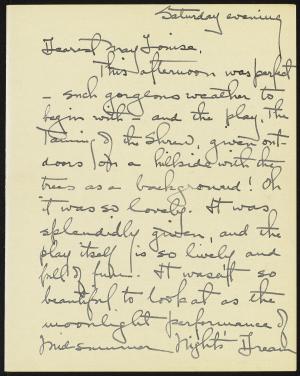 Saturday evening
Dearest May Louise,
This afternoon was perfect
- such gorgeous weather to
begin with - and the play, The
Taming of the Shrew, given out-
doors on a hillside with the
trees as a background! Oh
it was so lovely. It was
splendidly given, and the
play itself is so lively and
full of fun. It wasn't so
beautiful to look at as the
moonlight performance of
Midsummer Night's Dream